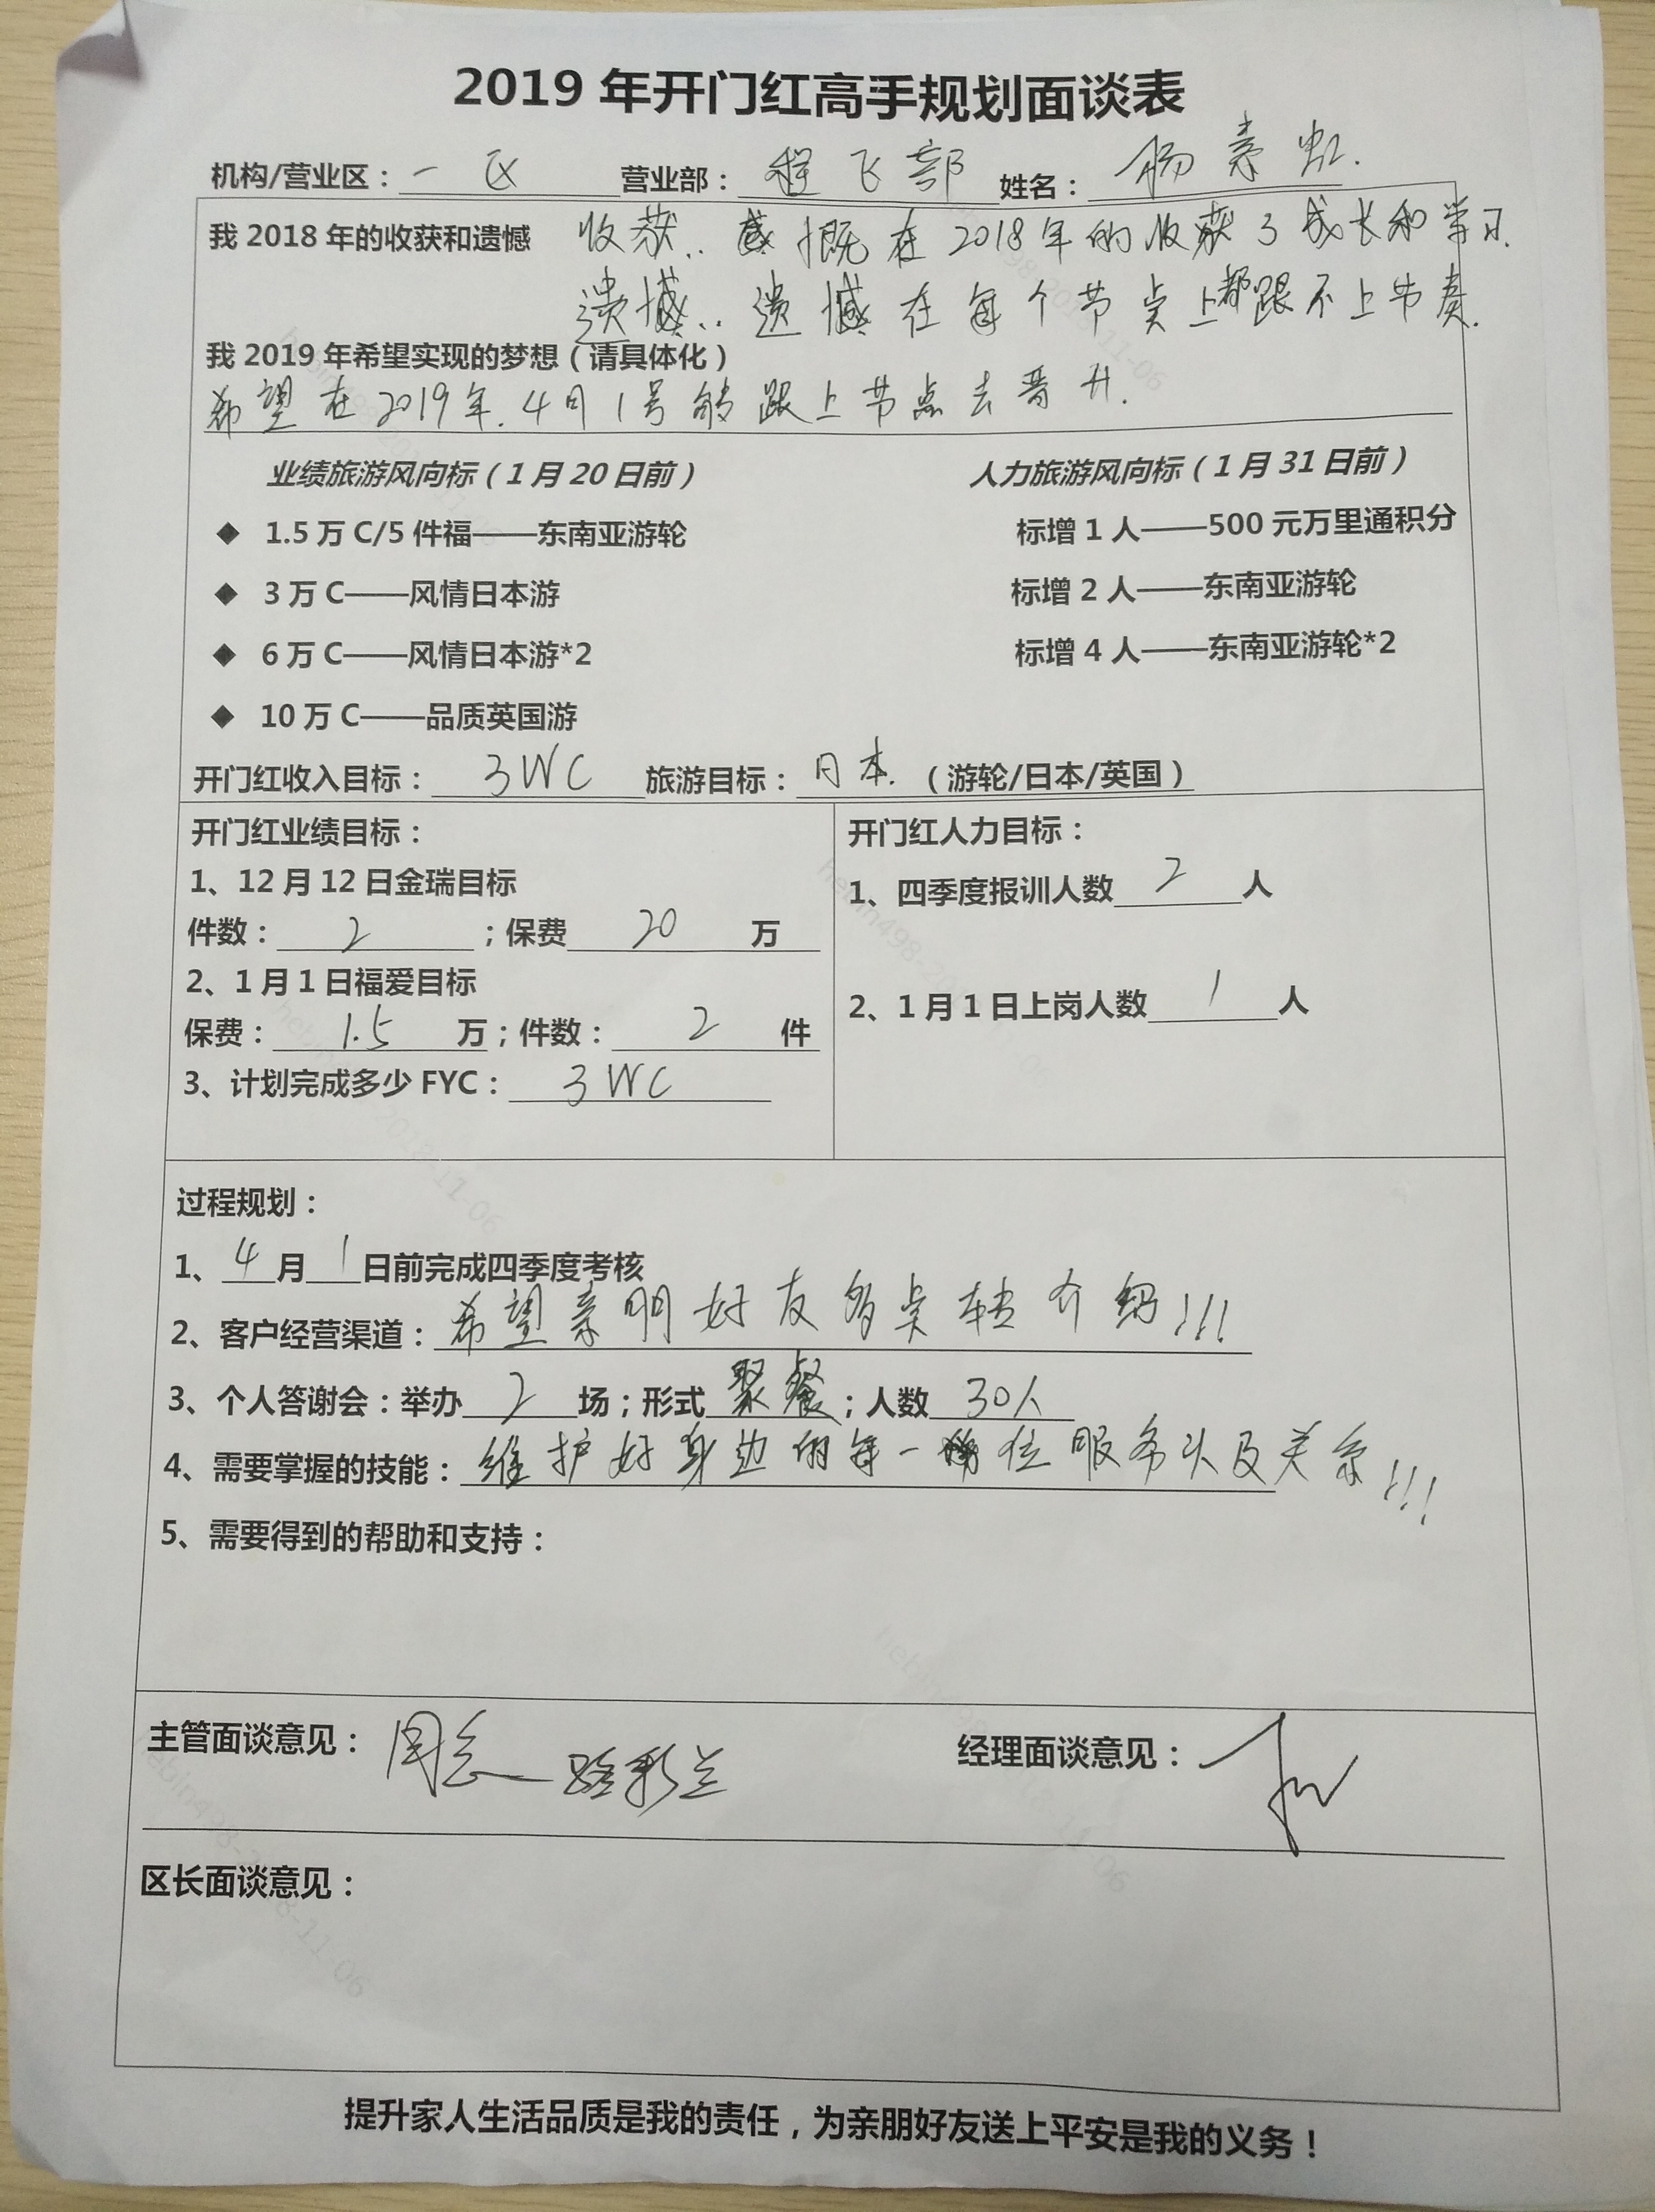 2019 年开门红高手规划面谈表
机构/营业区：一区 营业部：程飞部 姓名：杨素虹.
我 2018 年的收获和遗憾 收获.. 感慨在2018年的收获了成长和学习.
遗憾.. 遗憾在每个节点上都跟不上节奏.
我 2019 年希望实现的梦想（请具体化）
希望在2019年.4月1号能跟上节点去晋升.
业绩旅游风向标（1 月 20 日前） 人力旅游风向标（1 月 31 日前）
◆ 1.5 万 C/5 件福——东南亚游轮 标增 1 人——500 元万里通积分
◆ 3 万 C——风情日本游 标增 2 人——东南亚游轮
◆ 6 万 C——风情日本游*2 标增 4 人——东南亚游轮*2
◆ 10 万 C——品质英国游
开门红收入目标：3WC 旅游目标：日本.（游轮/日本/英国）
开门红业绩目标： 开门红人力目标：
1、12 月 12 日金瑞目标
1、四季度报训人数 2 人
件数：2；保费 20 万
2、1 月 1 日福爱目标
2、1 月 1 日上岗人数 1 人
保费：1.5 万；件数：2 件
3、计划完成多少 FYC：3WC
过程规划：
1、4月1日前完成四季度考核
2、客户经营渠道：希望亲朋好友多点转介绍!!!
3、个人答谢会：举办 2 场；形式聚餐；人数 30人
4、需要掌握的技能：维护好身边的每一位服务以及关系!!!
5、需要得到的帮助和支持：
主管面谈意见：同意 路彩兰 经理面谈意见：
区长面谈意见：
提升家人生活品质是我的责任，为亲朋好友送上平安是我的义务！